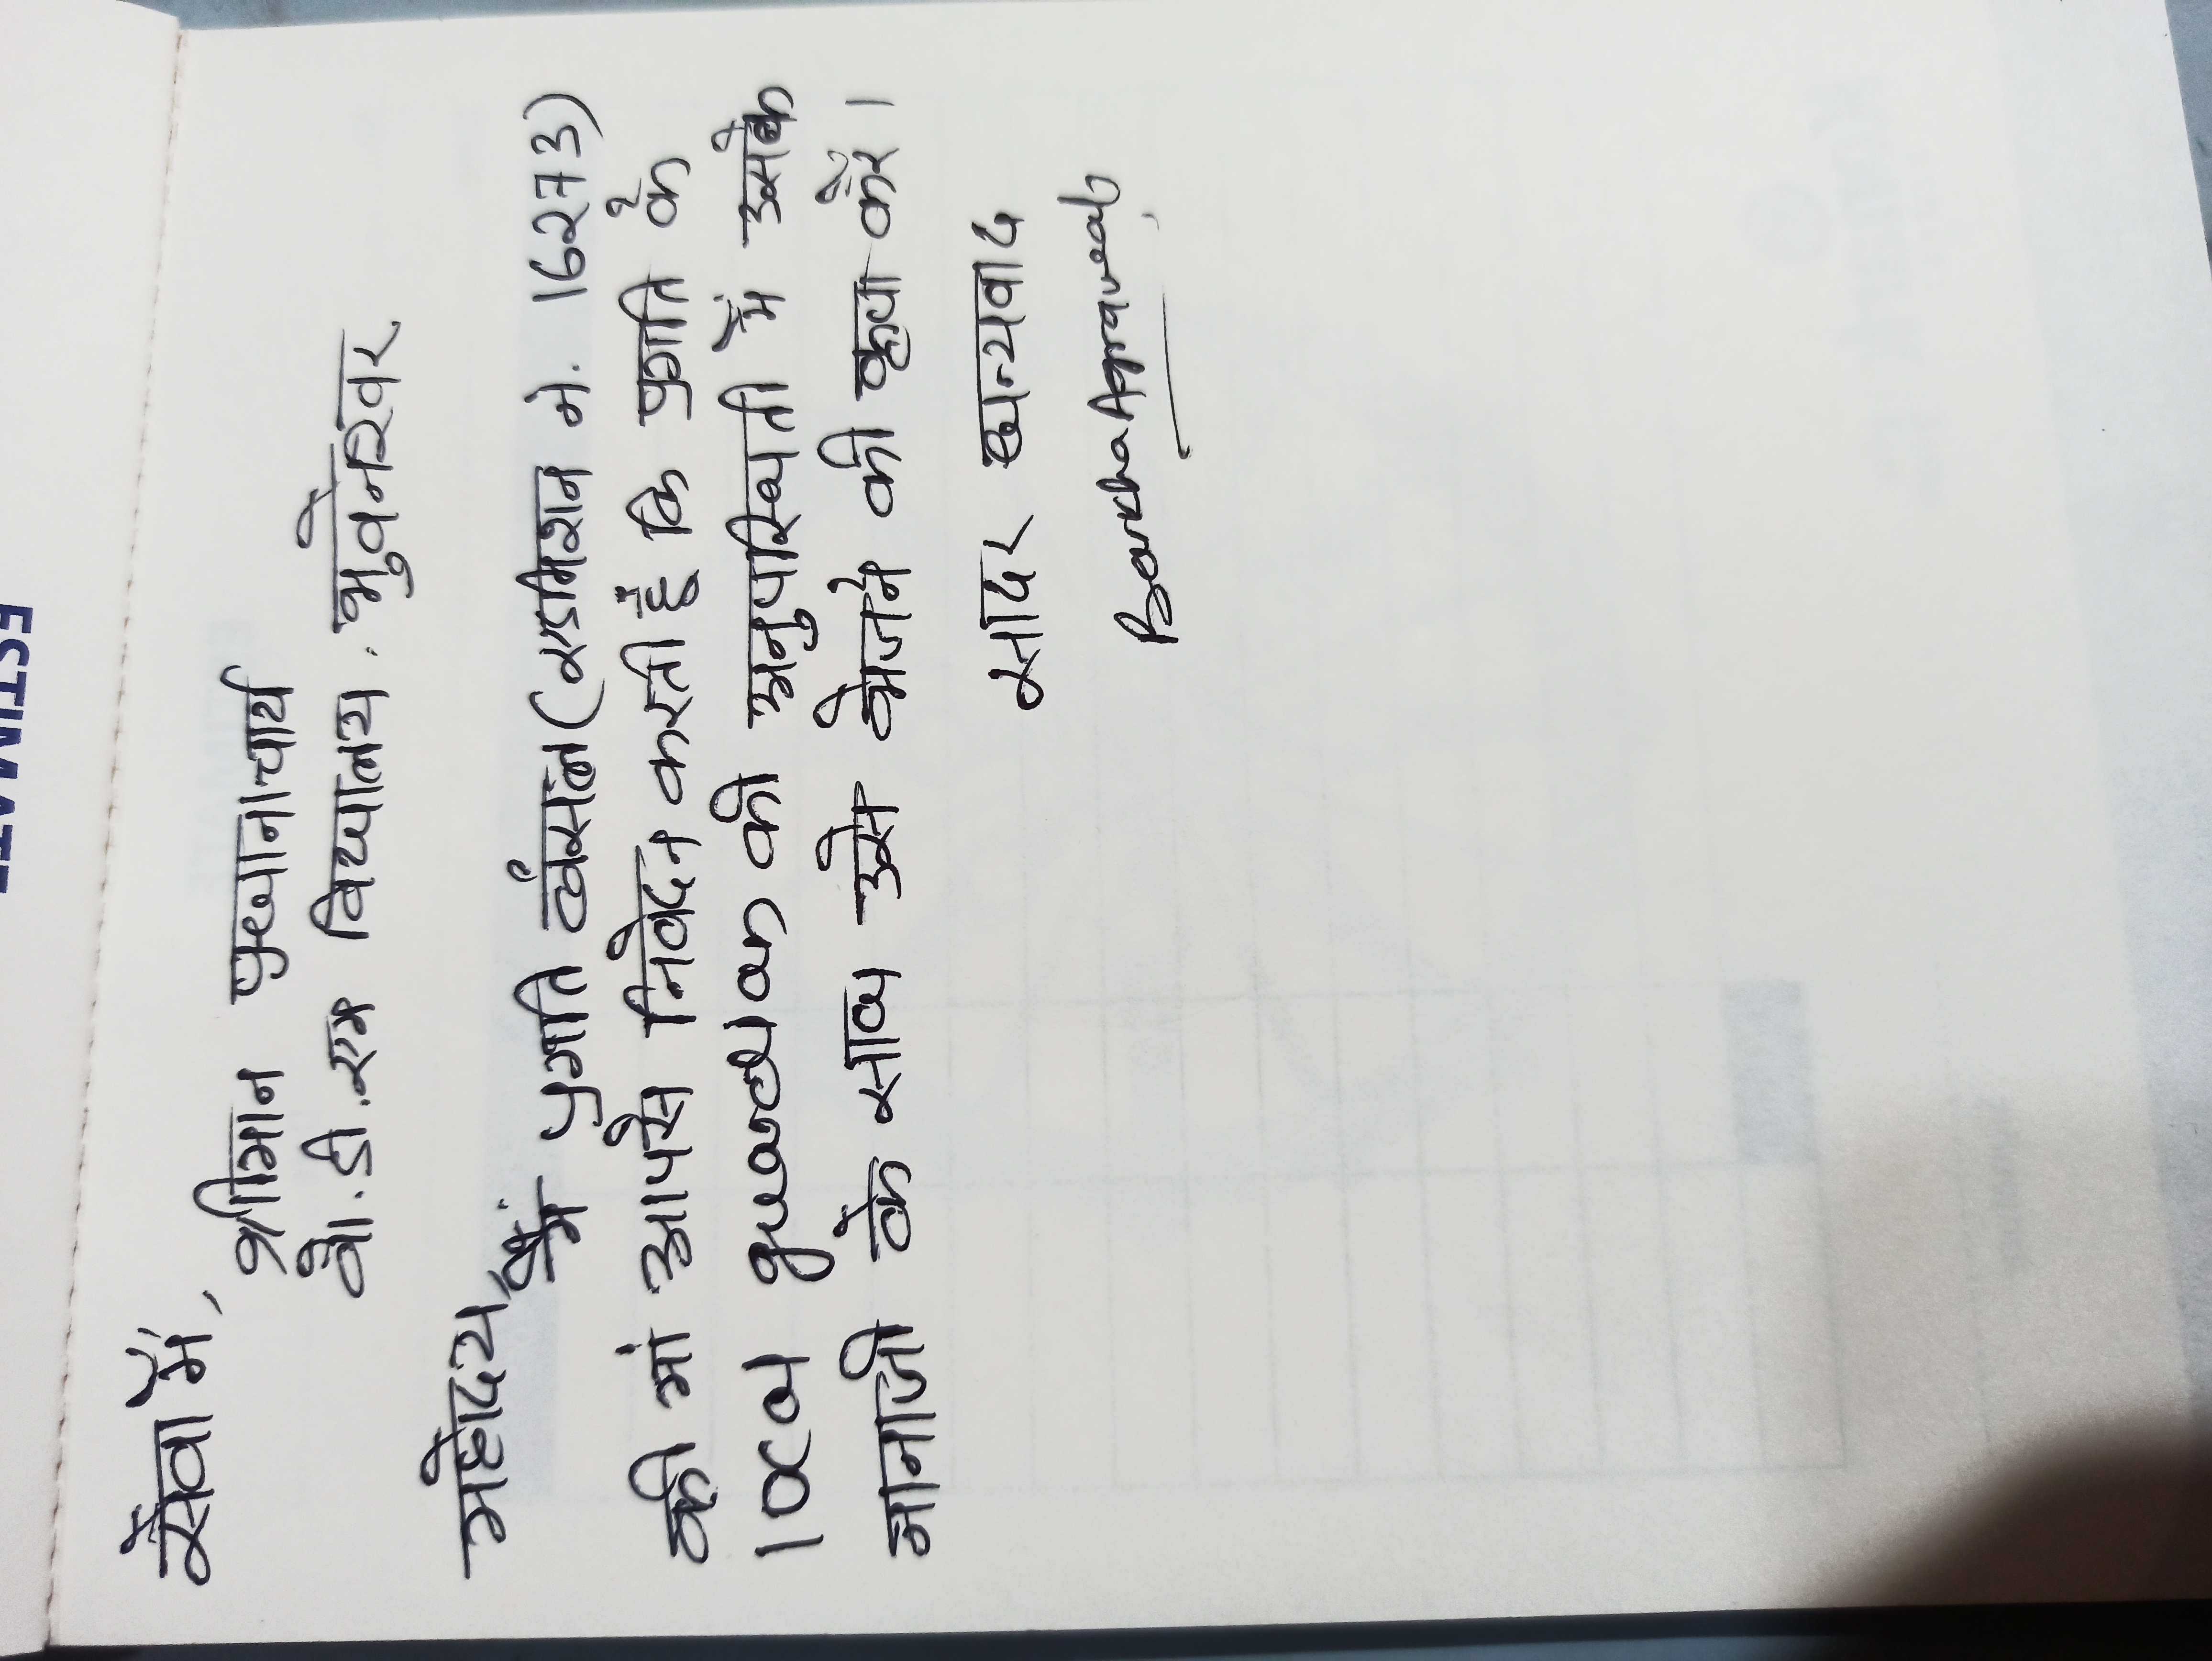 सेवा में,
श्रीमान प्रधानाचार्य
बी.डी.एम विद्यालय. भुवनेश्वर
महोदय,
मैं प्रगति बंसल (एडमिशन नं. 16273)
की मां आपसे निवेदन करती हूँ कि प्रगति के
local guardian की अनुपस्थिती में उसके
नानाजी के साथ उसे भेजने की कृपा करें।
सादर धन्यवाद
ESTIMATE